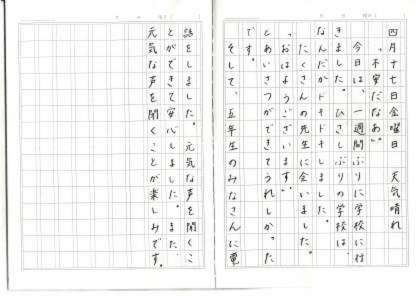 四月十七日金曜日　天気晴れ
「不安だなあ」
今日は、一週間ぶりに学校に行
きました。ひさしぶりの学校は、
なんだかドキドキしました。
たくさんの先生に会いました。
「おはようございます。」
とあいさつができてうれしかった
です。
そして、五年生のみなさんに電
話をしました。元気な声を聞くこ
とができて安心しました。また、
元気な声を聞くことが楽しみです。